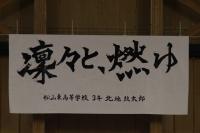 凛々と、燃ゆ
松山東高等学校 3年 北地 鼓太郎